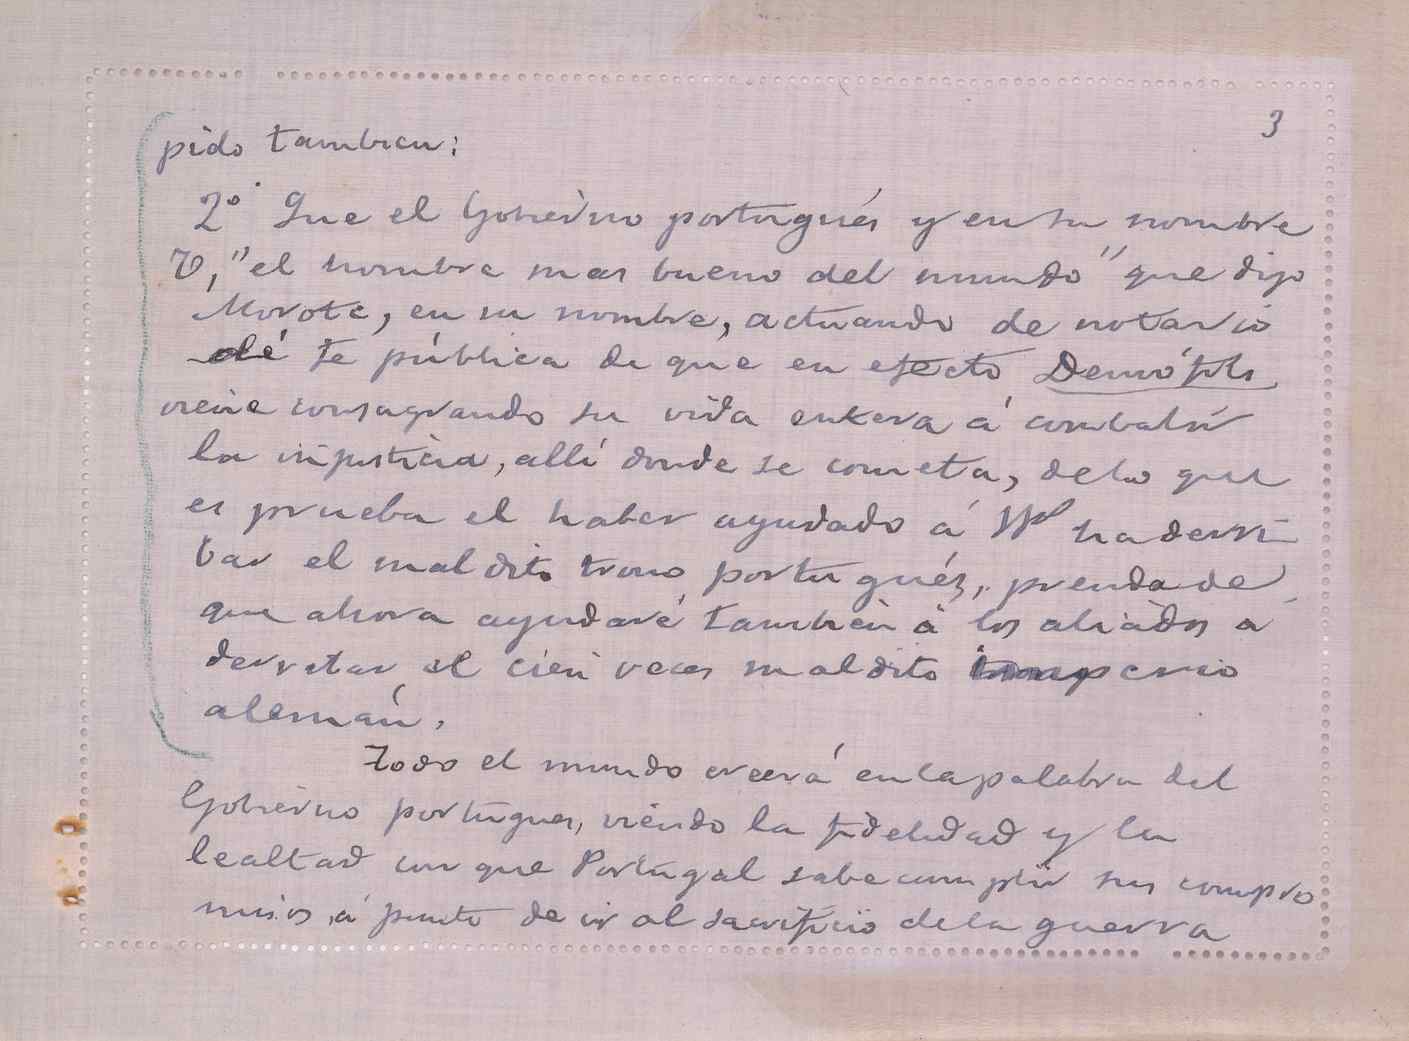 3
pido tambien:
2º Que el Gobierno portugués y en su nombre
V, "el hombre mas bueno del mundo" que dijo
Morote, en su nombre, actuando de notario
dé fe pública de que en efecto Demófilo
viene consagrando su vida entera á combatir
la injusticia, allí donde se cometa, de lo que
es prueba el haber ayudado á Vds ha derri
bar el maldito trono portugués, prenda de
que ahora ayudaré tambien á los aliados á
derrotar el cien veces maldito imperio
alemán.
Todo el mundo creerá en la palabra del
Gobierno portugues, viendo la fidelidad y la
lealtad con que Portugal sabe cumplir sus compro
misos, á punto de ir al sacrificio de la guerra